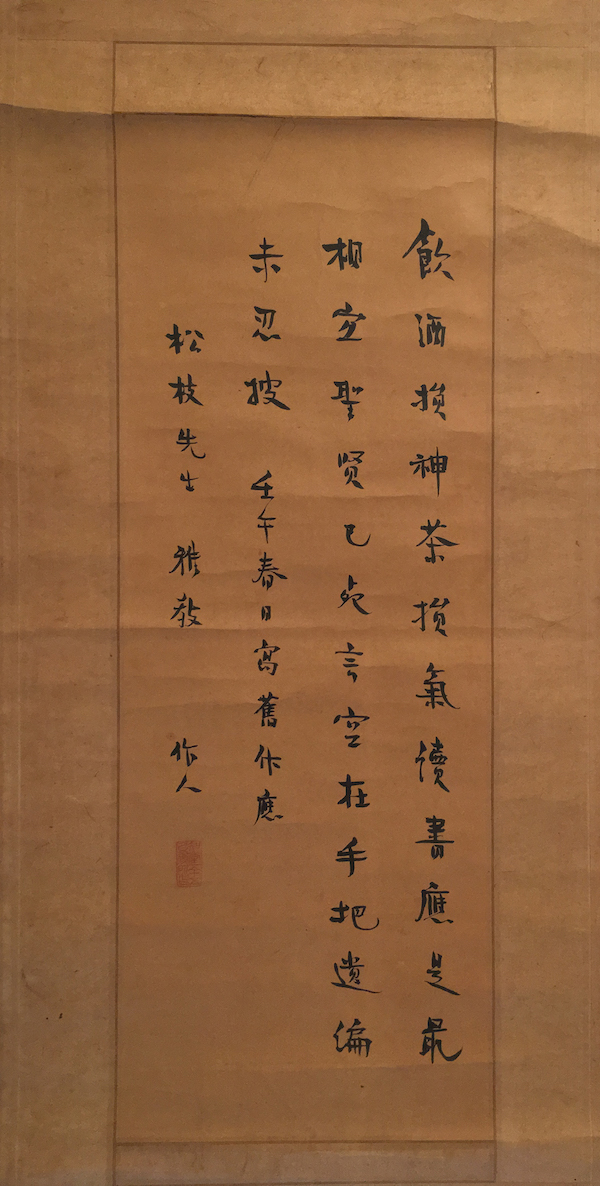 飲酒損神茶損氣讀書應是最
相宜聖賢已死言空在手把遺編
未忍披　壬午春日寫舊作應
松枝先生　雅教　作人